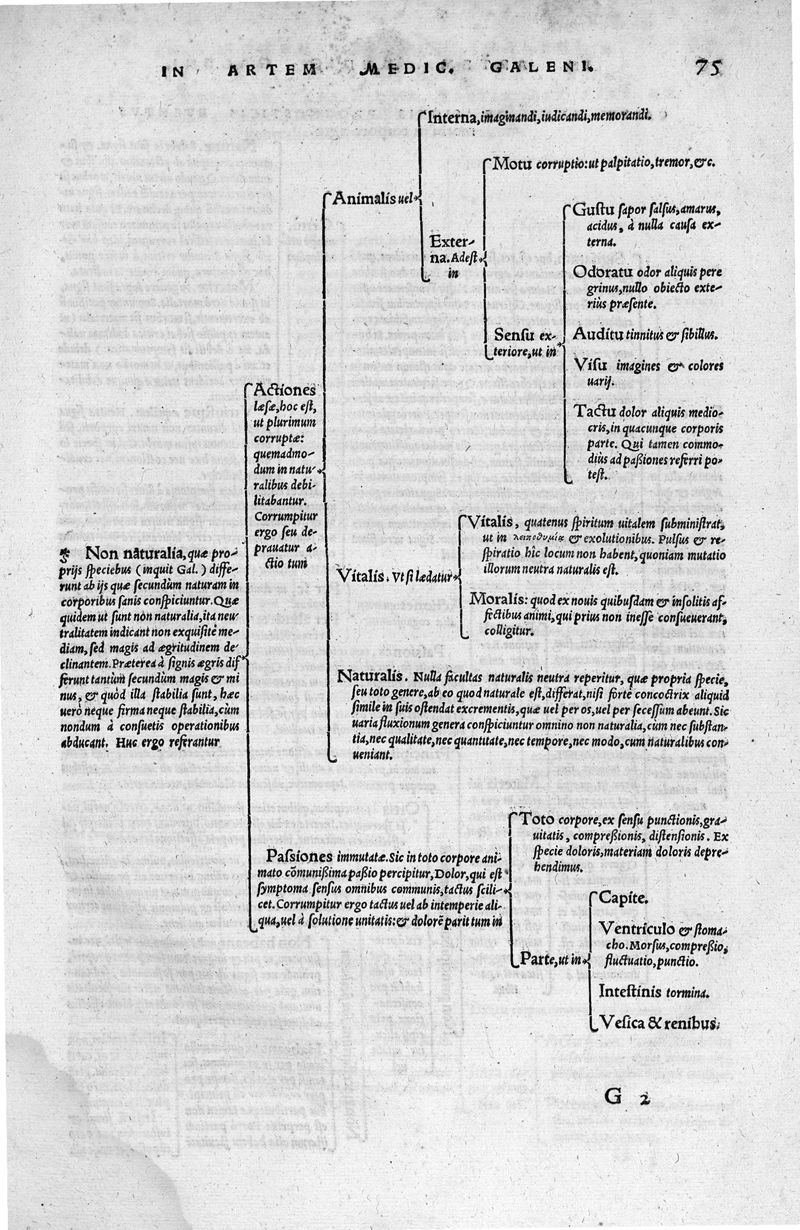 IN ARTEM MEDIC. GALENI. 75
Non nāturalia, quæ pro-
prijs speciebus (inquit Gal.) diffe-
runt ab ijs quæ secundùm naturam in
corporibus sanis conspiciuntur. Quæ
quidem ut sunt nòn naturalia, ita neu-
tralitatem indicant non exquisitè me-
diam, sed magis ad ægritudinem de-
clinantem. Præterea à signis ægris dif
ferunt tantùm secundùm magis & mi
nus, & quòd illa stabilia sunt, hæc
uerò neque firma neque stabilia, cùm
nondum à consuetis operationibus
abducant. Huc ergo referantur
Actiones
læsæ, hoc est,
ut plurimum
corruptæ:
quemadmo-
dum in natu-
ralibus debi-
litabantur.
Corrumpitur
ergo seu de-
prauatur a-
ctio tum
Animalis uel
Interna, imaginandi, iudicandi, memorandi.
Exter-
na. Adest
in
Motu corruptio: ut palpitatio, tremor, &c.
Sensu ex-
teriore, ut in
Gustu sapor salsus, amarus,
acidus, à nulla causa ex-
terna.
Odoratu odor aliquis pere
grinus, nullo obiecto exte-
riùs præsente.
Auditu tinnitus & sibillus.
Visu imagines & colores
uarij.
Tactu dolor aliquis medio-
cris, in quacunque corporis
parte. Qui tamen commo-
diùs ad passiones referri po-
test.
Vitalis. Vt si lædatur
Vitalis, quatenus spiritum uitalem subministrat,
ut in & exolutionibus. Pulsus & re-
spiratio hic locum non habent, quoniam mutatio
illorum neutra naturalis est.
Moralis: quod ex nouis quibusdam & insolitis af-
fectibus animi, qui prius non inesse consueuerant,
colligitur.
Naturalis. Nulla facultas naturalis neutra reperitur, quæ propria specie,
seu toto genere, ab eo quod naturale est, differat, nisi fortè concoctrix aliquid
simile in suis ostendat excrementis, quæ uel per os, uel per secessum abeunt. Sic
uaria fluxionum genera conspiciuntur omnino non naturalia, cùm nec substan-
tia, nec qualitate, nec quantitate, nec tempore, nec modo, cum naturalibus con-
ueniant.
Passiones immutatæ. Sic in toto corpore ani-
mato cōmunißima paßio percipitur, Dolor, qui est
symptoma sensus omnibus communis, tactus scili-
cet. Corrumpitur ergo tactus uel ab intemperie ali-
qua, uel à solutione unitatis: & dolorē parit tum in
Toto corpore, ex sensu punctionis, gra-
uitatis, compreßionis, distensionis. Ex
specie doloris, materiam doloris depre-
hendimus.
Parte, ut in
Capite.
Ventriculo & stoma-
cho. Morsus, compreßio,
fluctuatio, punctio.
Intestinis tormina.
Vesica & renibus.
G 2